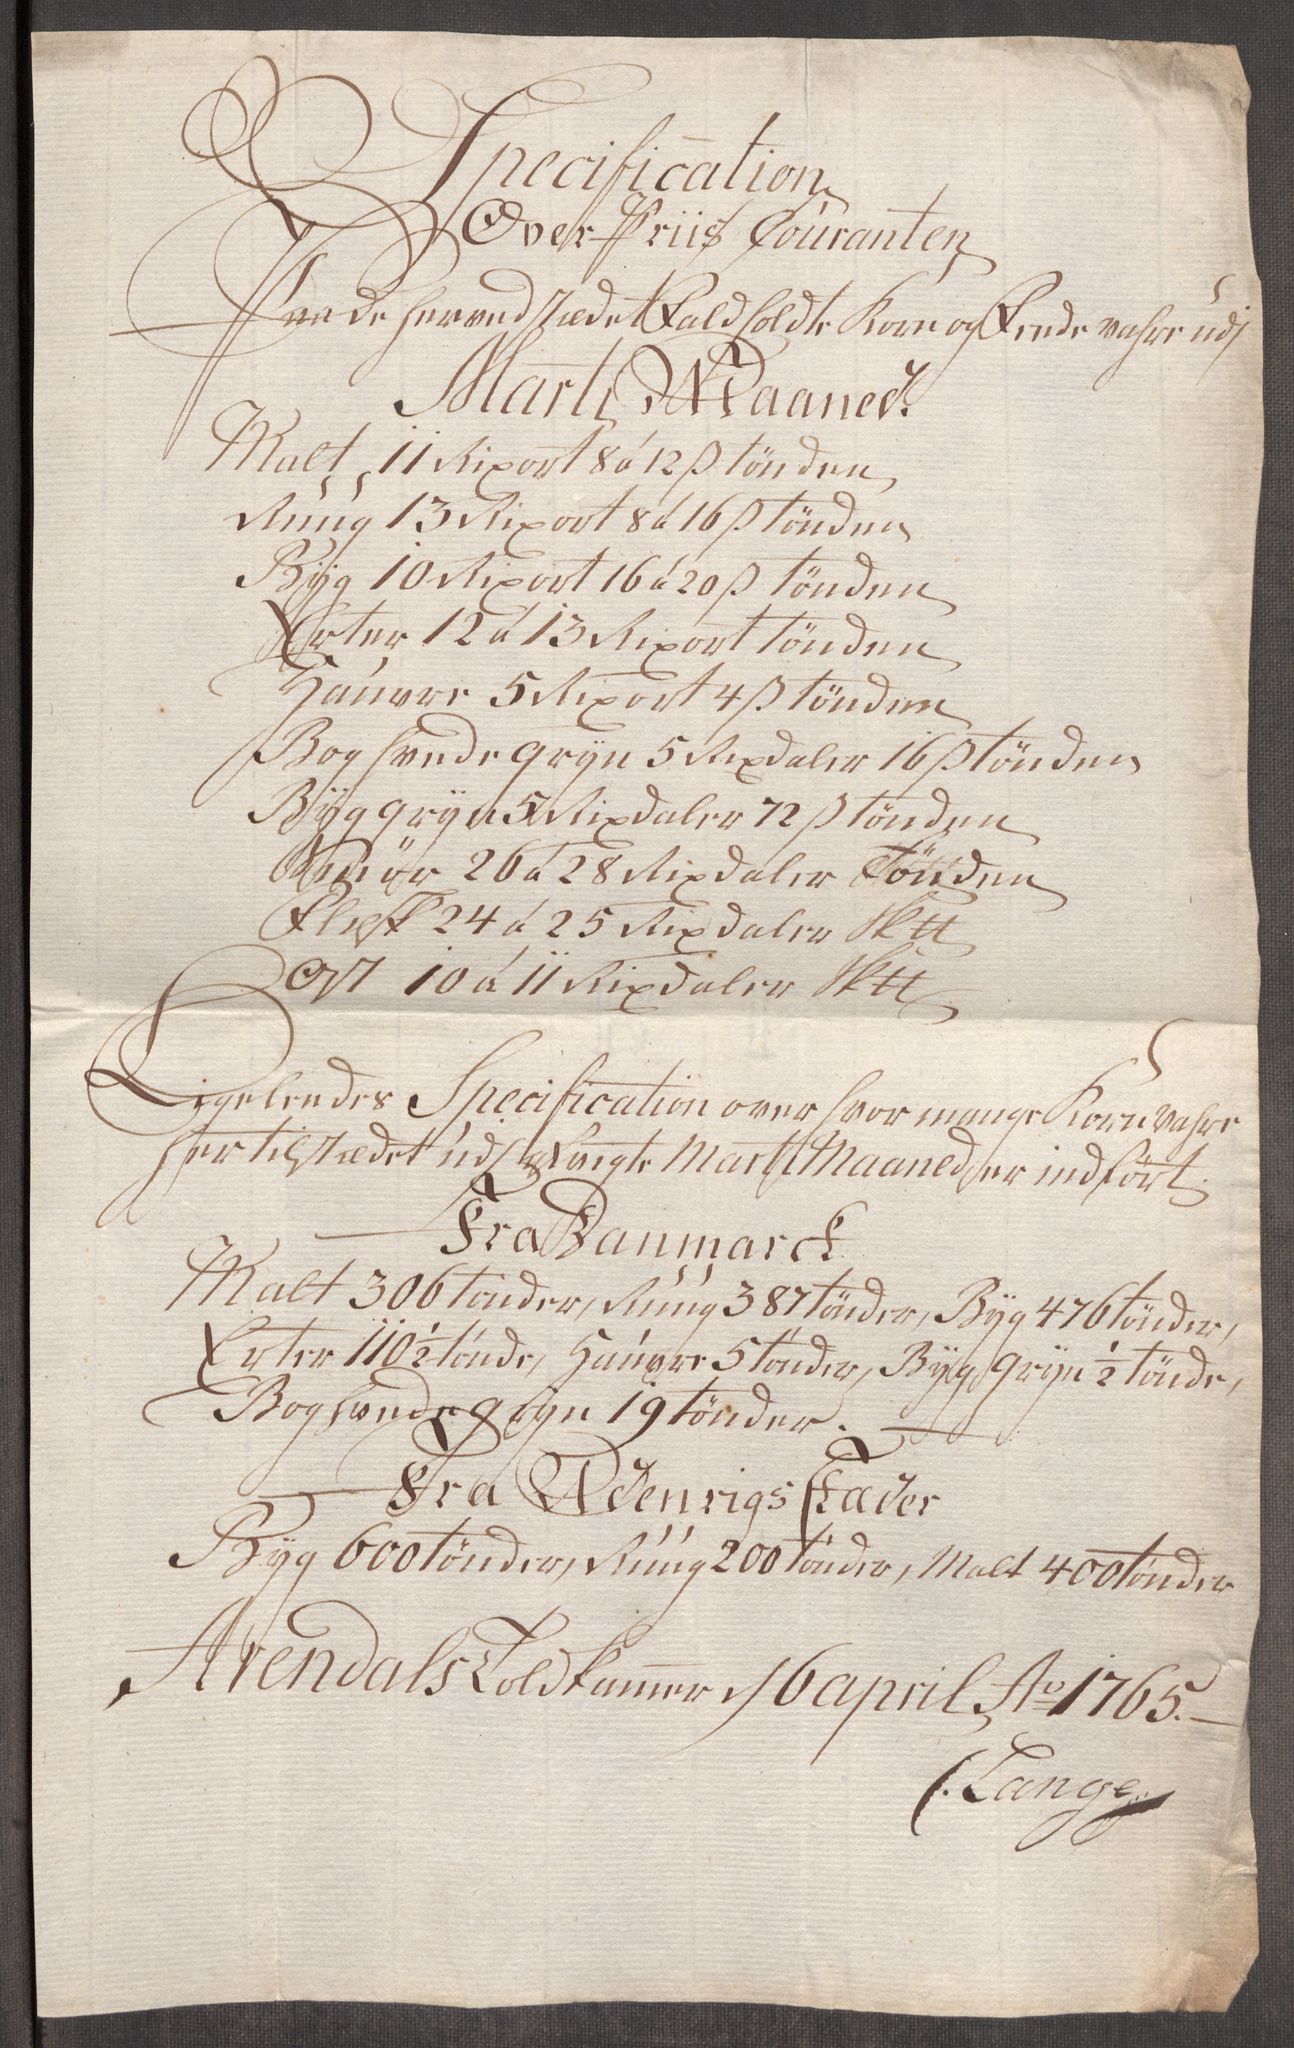 Specification
Over Priis Couranten
Paa de her ved Stædet Faldholdte Korn og Feede vahre udj
Marti Maaned.
Malt 11 Rixort 8 á 12 ß tönden
Rúúg 13 Rixort 8 á 16 ß tönden
Bÿg 10 Rixort 16 á 20 ß tönden
Erter 12 á 13 Rixort tönden
Haúvre 5 Rixort 4 ß tönden
Boghvede grÿn 5 Rixdaler 16 ß tönden
Bÿg grÿn 5 Rixdaler 72 ß tönden
Smör 26 á 28 Rixdaler Tönden
Flesk 24 á 25 Rixdaler Sk℔
Ost 10 á 11 Rixdaler Sk℔
Ligeleedes Specification over hvor mange Korn vahre
her til Stædet údj Marti Maaned er indfört.
Fra Danmarck
Malt 306 tönder, Rúúg 387 tönder, Bÿg 476 tönder,
Erter 110 ½ tönde, Haúvre 5 tönder, Bÿg grÿn ½ tönde,
Boghvede grÿn 19 tönder.
Fra Udenrigs Stæder
Bÿg 600 tönder, Rúúg 200 tönder, Malt 400 tönder
Arendals Toldkammer 16 april Ao 1765.
Lange